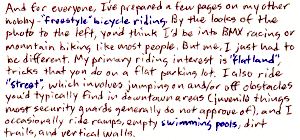 And for everyone, I've prepared a few pages on my other
hobby-"freestyle" bicycle riding. By the looks of the
photo to the left, you'd think I'd be into BMX racing or
mountain biking like most people. But me, I just had to
be different. My primary riding interest is "flatland",
tricks that you do on a flat parking lot. I also ride
"street", which involves jumping on and/or off obstacles
you'd typically find in downtown areas (juvenile things
most security guards generally do not approve of), and I
occasionally ride ramps, empty swimming pools, dirt
trails, and vertical walls.